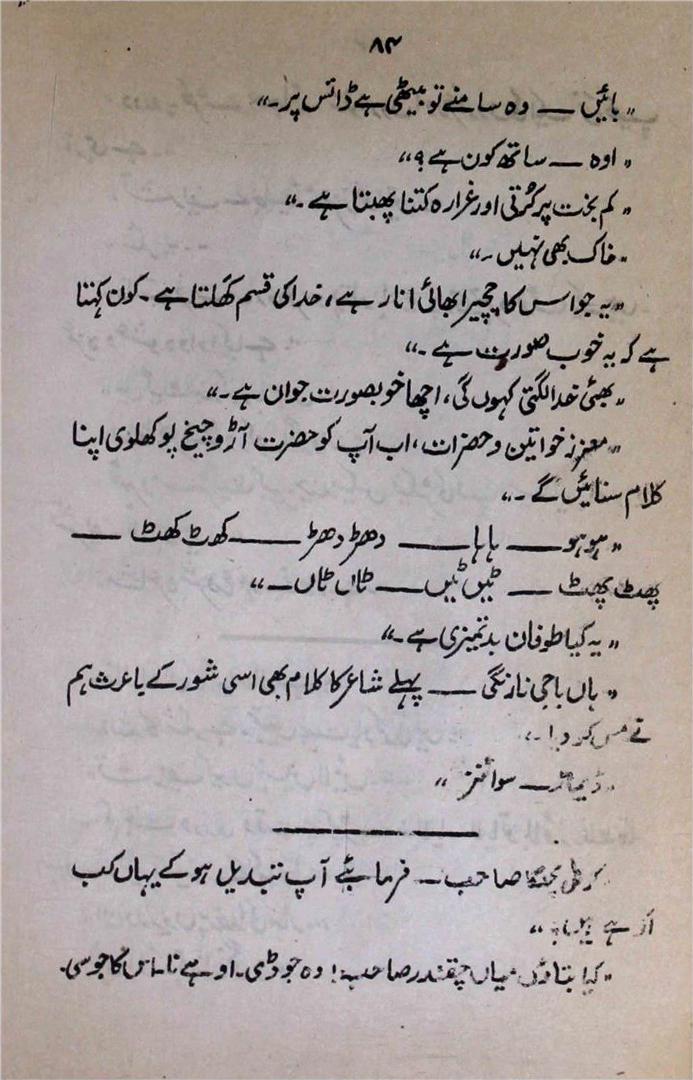 ۸۴
"بائیں — وہ سامنے تو بیٹھی ہے ڈائس پر۔"
"اوہ — ساتھ کون ہے؟"
"کم بخت پر کُرتی اور غرارہ کتنا پھبتا ہے۔"
"خاک بھی نہیں۔"
"یہ جو اس کا چچیرا بھائی انار ہے، خدا کی قسم کھَلتا ہے۔ کون کہتا
ہے کہ یہ خوب صورت ہے۔"
"بھئی خدا لگتی کہوں گی، اچھا خوبصورت جوان ہے۔"
"معزز خواتین و حضرات، اب آپ کو حضرت آڑو چیخ پوکھلوی اپنا
کلام سنائیں گے۔"
"ہو ہو — ہا ہا — دھڑ دھڑ — کھٹ کھٹ —
پھٹ پھٹ — ٹیں ٹیں — ٹاں ٹاں —"
"یہ کیا طوفان بدتمیزی ہے۔"
"ہاں باجی نارنگی — پہلے شاعر کا کلام بھی اسی شور کے باعث ہم
نے مس کر دیا۔"
"ڈیم — سوائنز"
صاحب — فرمائیے آپ تبدیل ہو کے یہاں کب
آ رہے ہیں؟"
"کیا بتاؤں میاں چقندر صاحب! وہ جو ڈی۔ او۔ ہے نا۔ اس کا جوسی۔